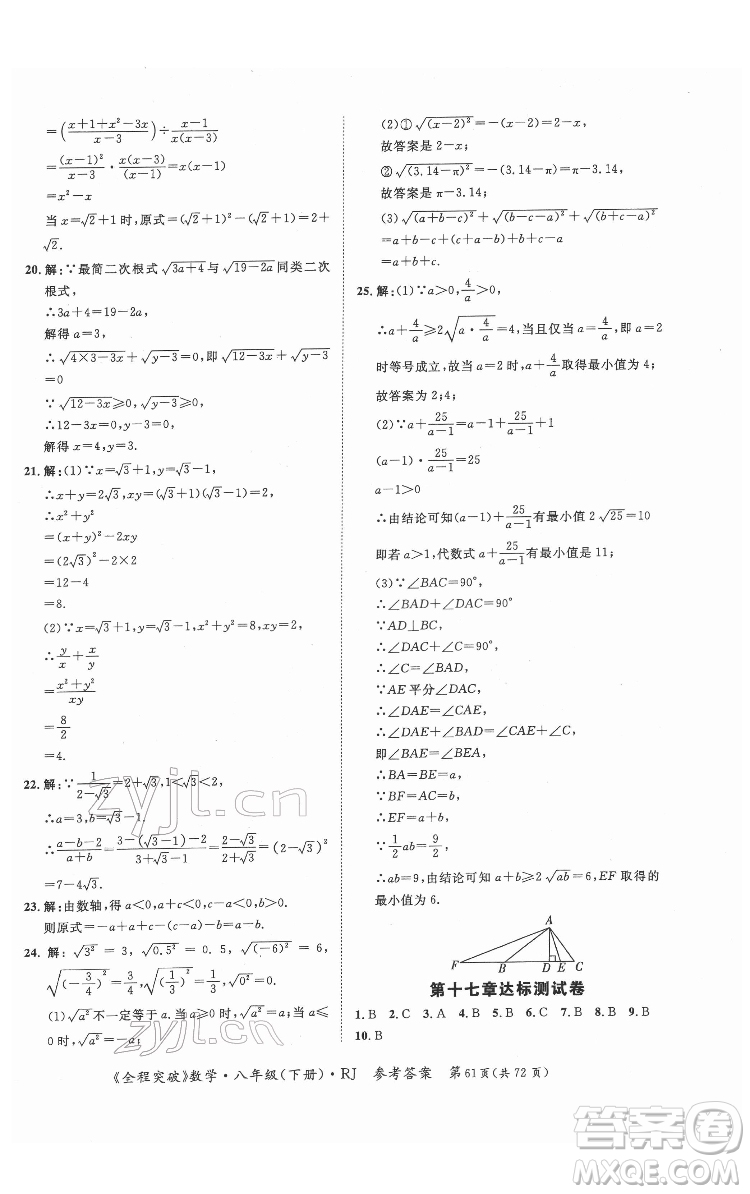 =((x+1+x²-3x)/(x-3))÷(x-1)/(x(x-3))
=(x-1)²/(x-3)·x(x-3)/(x-1)=x(x-1)
=x²-x
当x=√2+1时,原式=(√2+1)²-(√2+1)=2+
√2.
20. 解:∵最简二次根式√(3a+4)与√(19-2a)同类二次
根式,
∴3a+4=19-2a
解得a=3,
∴√(4×3-3x)+√(y-3)=0,即√(12-3x)+√(y-3)
=0
∵√(12-3x)≥0,√(y-3)≥0,
∴12-3x=0,y-3=0,
解得x=4,y=3.
21. 解:(1)∵x=√3+1,y=√3-1,
∴x+y=2√3,xy=(√3+1)(√3-1)=2,
∴x²+y²
=(x+y)²-2xy
=(2√3)²-2×2
=12-4
=8.
(2)∵x=√3+1,y=√3-1,x²+y²=8,xy=2,
∴y/x+x/y
=(x²+y²)/(xy)
=8/2
=4.
22. 解:∵1/(2-√3)=2+√3,1<√3<2,
∴a=3,b=√3-1.
∴(a-b-2)/(a+b)=(3-(√3-1)-2)/(3+√3-1)=(2-√3)/(2+√3)=(2-√3)²
=7-4√3.
23. 解:由数轴,得a<0,a+b<0,-a>0,b>0.
则原式=-a+a+b-a+b=-a+2b.
24. 解:√3²=3,√0.5²=0.5,√(-6)²=6,
√(-3/4)²=3/4,√(1/3)²=1/3,√0²=0,
(1)√a²不一定等于a,当a≥0时,√a²=a;当a
<0时,√a²=-a.
(2)①√(x-2)²=2-x,
故答案是2-x;
②√(3.14-π)²=π-3.14,
故答案是π-3.14;
(3)√(a+b-c)²+√(b-c-a)²+√(b+c-a)²
=a+b-c+a+c-b+b+c-a
=a+b+c.
25. 解:(1)∵a>0,4/a>0,
∴a+4/a≥2√(a·4/a)=4,当且仅当a=4/a,即a=2
时等号成立,故当a=2时,a+4/a取得最小值为4;
故答案为2;4;
(2)∵a+25/(a-1)=a-1+25/(a-1)+1,
(a-1)·25/(a-1)=25
a-1>0
∴由结论可知(a-1)+25/(a-1)有最小值2√25=10
即若a>1,代数式a+25/(a-1)有最小值是11;
(3)∵∠BAC=90°
∴∠BAD+∠DAC=90°
∵AD⊥BC,
∴∠C+∠DAC=90°,
∴∠C=∠BAD,
∵AE平分∠DAC,
∴∠DAE=∠CAE,
∴∠DAE+∠BAD=∠CAE+∠C,
即∠BAE=∠BEA,
∴BA=BE=a,
∵BF=AC=b,
∴EF=AB+AC=a+b,
∵1/2ab=9/2,
∴ab=9,由结论可知a+b≥2√ab=6,EF取得的
最小值为6.
A
F B D E C
第十七章达标测试卷
1.B 2.C 3.A 4.B 5.C 6.B 7.B 8.B 9.B
10.B
《全程突破》数学·八年级(下册)·RJ 参考答案 第61页(共72页)
zyjl.cn
zyjl.cn
答案圈